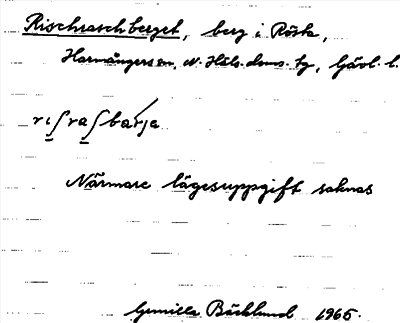 Rischraschberget, berg i Rösta,
Harmångers sn, N. Häls. doms. tg, Gävl. l.
rɪʃraʃbarje
Närmare lägesuppgift saknas
Gunilla Bäcklund 1965.